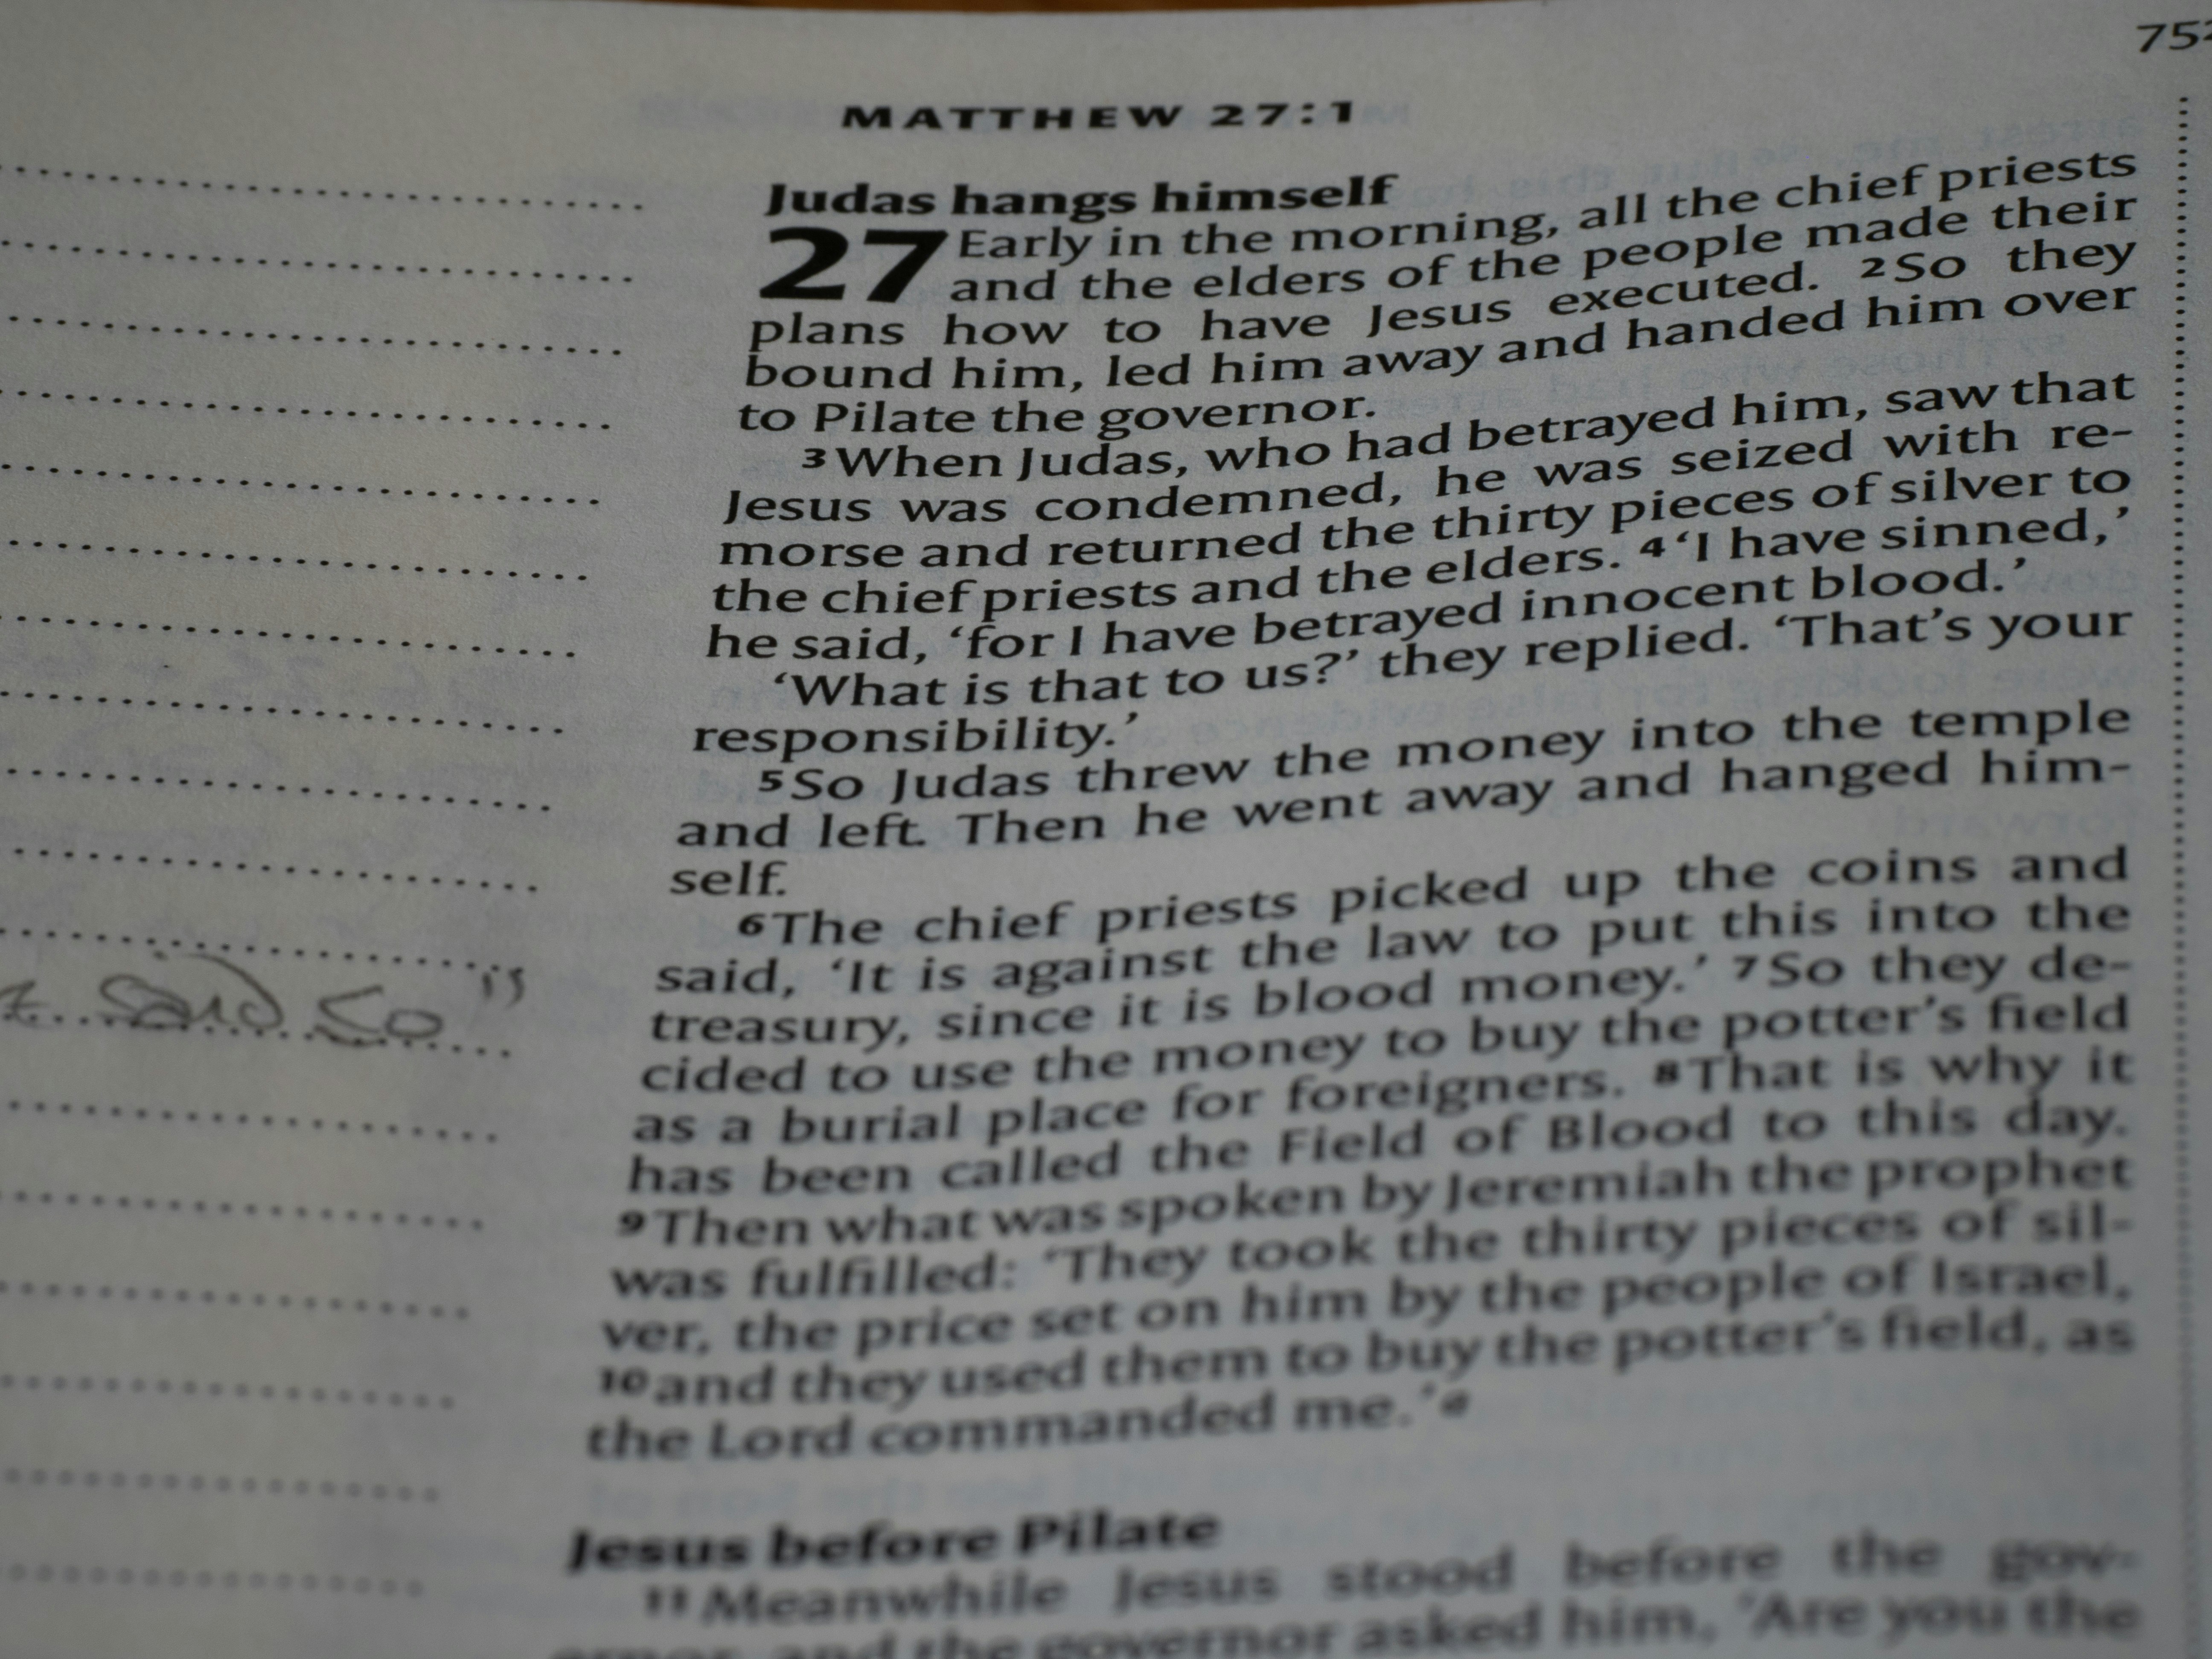 75
MATTHEW 27:1
Judas hangs himself
27 Early in the morning, all the chief priests
and the elders of the people made their
plans how to have Jesus executed. 2 So they
bound him, led him away and handed him over
to Pilate the governor.
3 When Judas, who had betrayed him, saw that
Jesus was condemned, he was seized with re-
morse and returned the thirty pieces of silver to
the chief priests and the elders. 4 ‘I have sinned,’
he said, ‘for I have betrayed innocent blood.’
‘What is that to us?’ they replied. ‘That’s your
responsibility.’
5 So Judas threw the money into the temple
and left. Then he went away and hanged him-
self.
6 The chief priests picked up the coins and
said, ‘It is against the law to put this into the
treasury, since it is blood money.’ 7 So they de-
cided to use the money to buy the potter’s field
as a burial place for foreigners. 8 That is why it
has been called the Field of Blood to this day.
9 Then what was spoken by Jeremiah the prophet
was fulfilled: ‘They took the thirty pieces of sil-
ver, the price set on him by the people of Israel,
10 and they used them to buy the potter’s field, as
the Lord commanded me.’
Jesus before Pilate
11 Meanwhile Jesus stood before the gov-
ernor, and the governor asked him, ‘Are you the
said so"